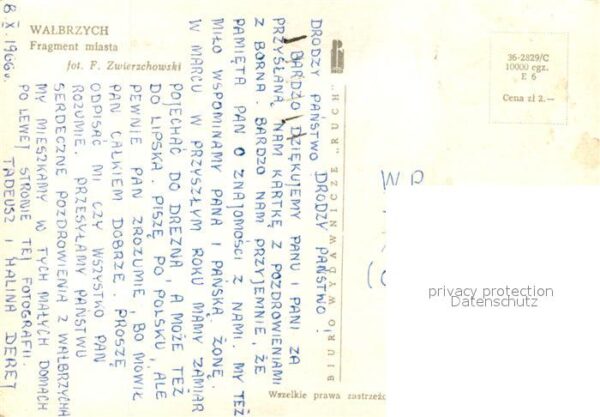 WAŁBRZYCH
Fragment miasta
fot. F. Zwierzchowski
8 X. 1966 r.
DRODZY PAŃSTWO DRODZY PAŃSTWO!
BARDZO DZIĘKUJEMY PANU I PANI ZA
PRZYSŁANĄ NAM KARTKĘ Z POZDROWIENIAMI
Z BORNA. BARDZO NAM PRZYJEMNIE, ŻE
PAMIĘTA PAN O ZNAJOMOŚCI Z NAMI. MY TEŻ
MIŁO WSPOMINAMY PANA I PAŃSKĄ ŻONĘ.
W MARCU W PRZYSZŁYM ROKU MAMY ZAMIAR
POJECHAĆ DO DREZNA, A MOŻE TEŻ
DO LIPSKA. PISZĘ PO POLSKU, ALE
PEWNIE PAN ZROZUMIE, BO MÓWIŁ
PAN CAŁKIEM DOBRZE. PROSZĘ
ODPISAĆ MI CZY WSZYSTKO PAN
ROZUMIE. PRZESYŁAMY PAŃSTWU
SERDECZNE POZDROWIENIA Z WAŁBRZYCHA
MY MIESZKAMY W TYCH MAŁYCH DOMACH
PO LEWEJ STRONIE TEJ FOTOGRAFII.
TADEUSZ I HALINA DEREJ
BIURO WYDAWNICZE "RUCH"
36-2829/C
10000 egz.
E 6
Cena zł 2.—
WP
privacy protection
Datenschutz
Wszelkie prawa zastrzeżo